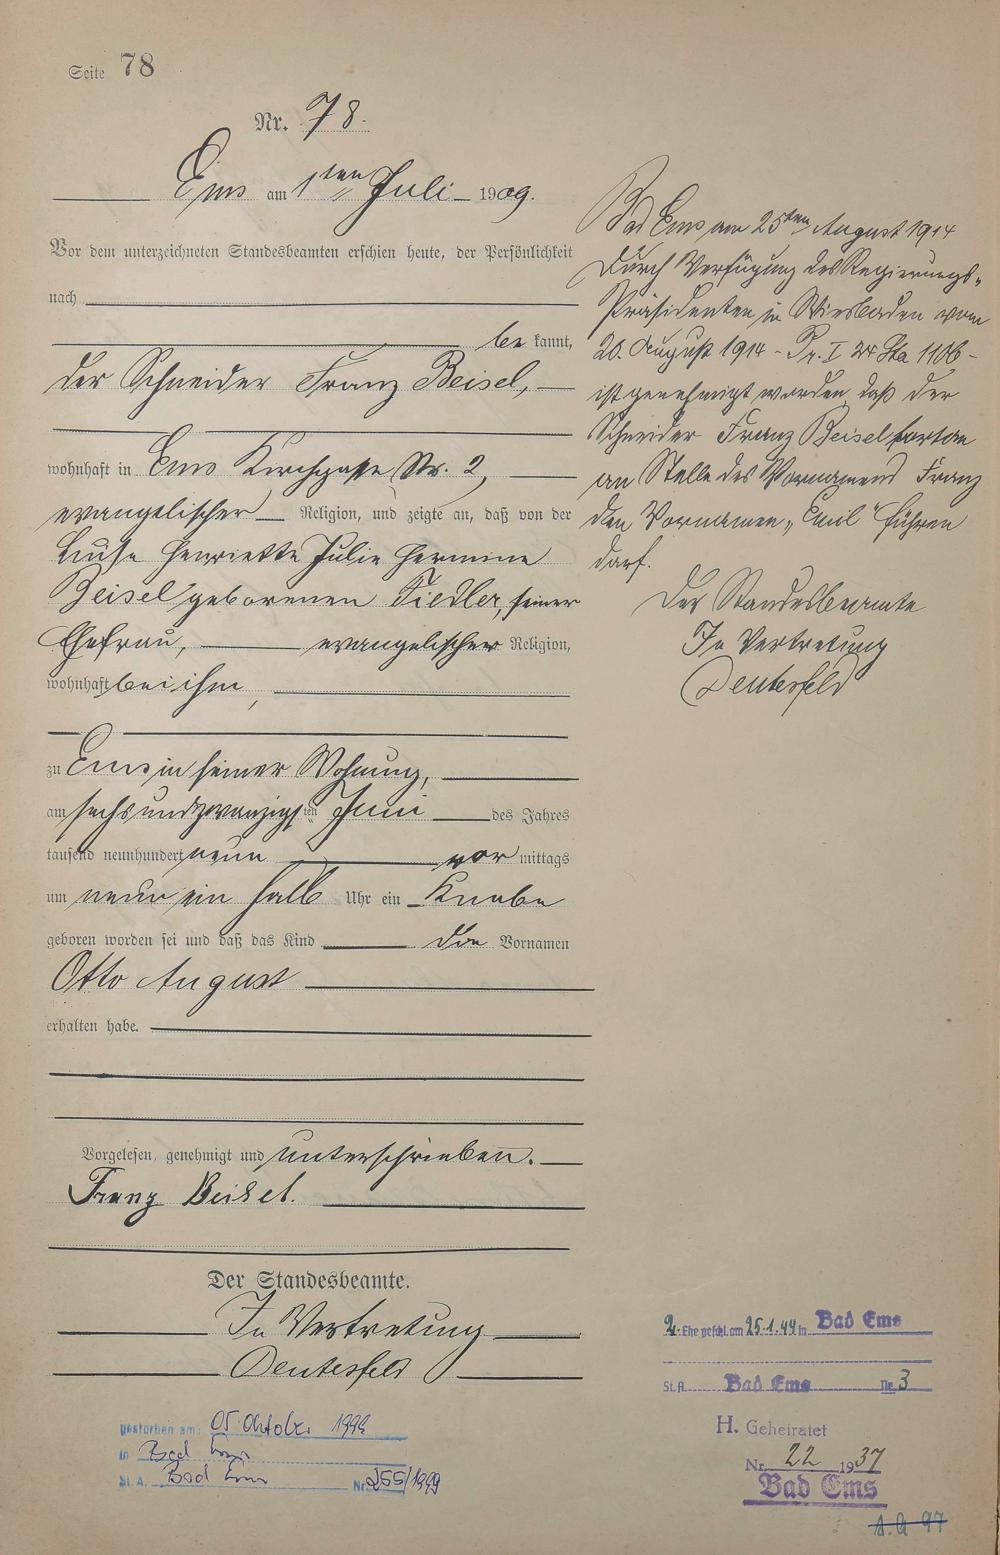 Seite 78
Nr. 78.
Ems am 1ten Juli 1909.
Vor dem unterzeichneten Standesbeamten erschien heute, der Persönlichkeit
nach
bekannt,
der Schneider Franz Beisel,
wohnhaft in Ems Kirchgasse Nr. 2,
evangelischer Religion, und zeigte an, daß von der
Luise Henriette Julie Hermine
Beisel geborenen Fiedler, seiner
Ehefrau, evangelischer Religion,
wohnhaft bei ihm,
zu Ems in seiner Wohnung,
am sechsundzwanzigsten Juni des Jahres
tausend neunhundert neun vormittags
um neun ein halb Uhr ein Knabe
geboren worden sei und daß das Kind die Vornamen
Otto August
erhalten habe.
Vorgelesen, genehmigt und unterschrieben.
Franz Beisel.
Der Standesbeamte.
In Vertretung
Deutesfeld
Bad Ems am 25ten August 1914
Durch Verfügung des Regierungs-
Präsidenten in Wiesbaden vom
20. August 1914 - Pr. I 1106 -
ist genehmigt worden, daß der
Schneider Franz Beisel fortan
an Stelle des Vornamens Franz
den Vornamen "Emil" führen
darf.
Der Standesbeamte
In Vertretung
Deutesfeld
gestorben am: 05. Oktober 1999
in Bad Ems
St. A. Bad Ems Nr. 255/1999
2. Ehe geschl. am 25.1.49 in Bad Ems
St. A. Bad Ems Nr. 3
H. Geheiratet
Nr. 22 1937
Bad Ems